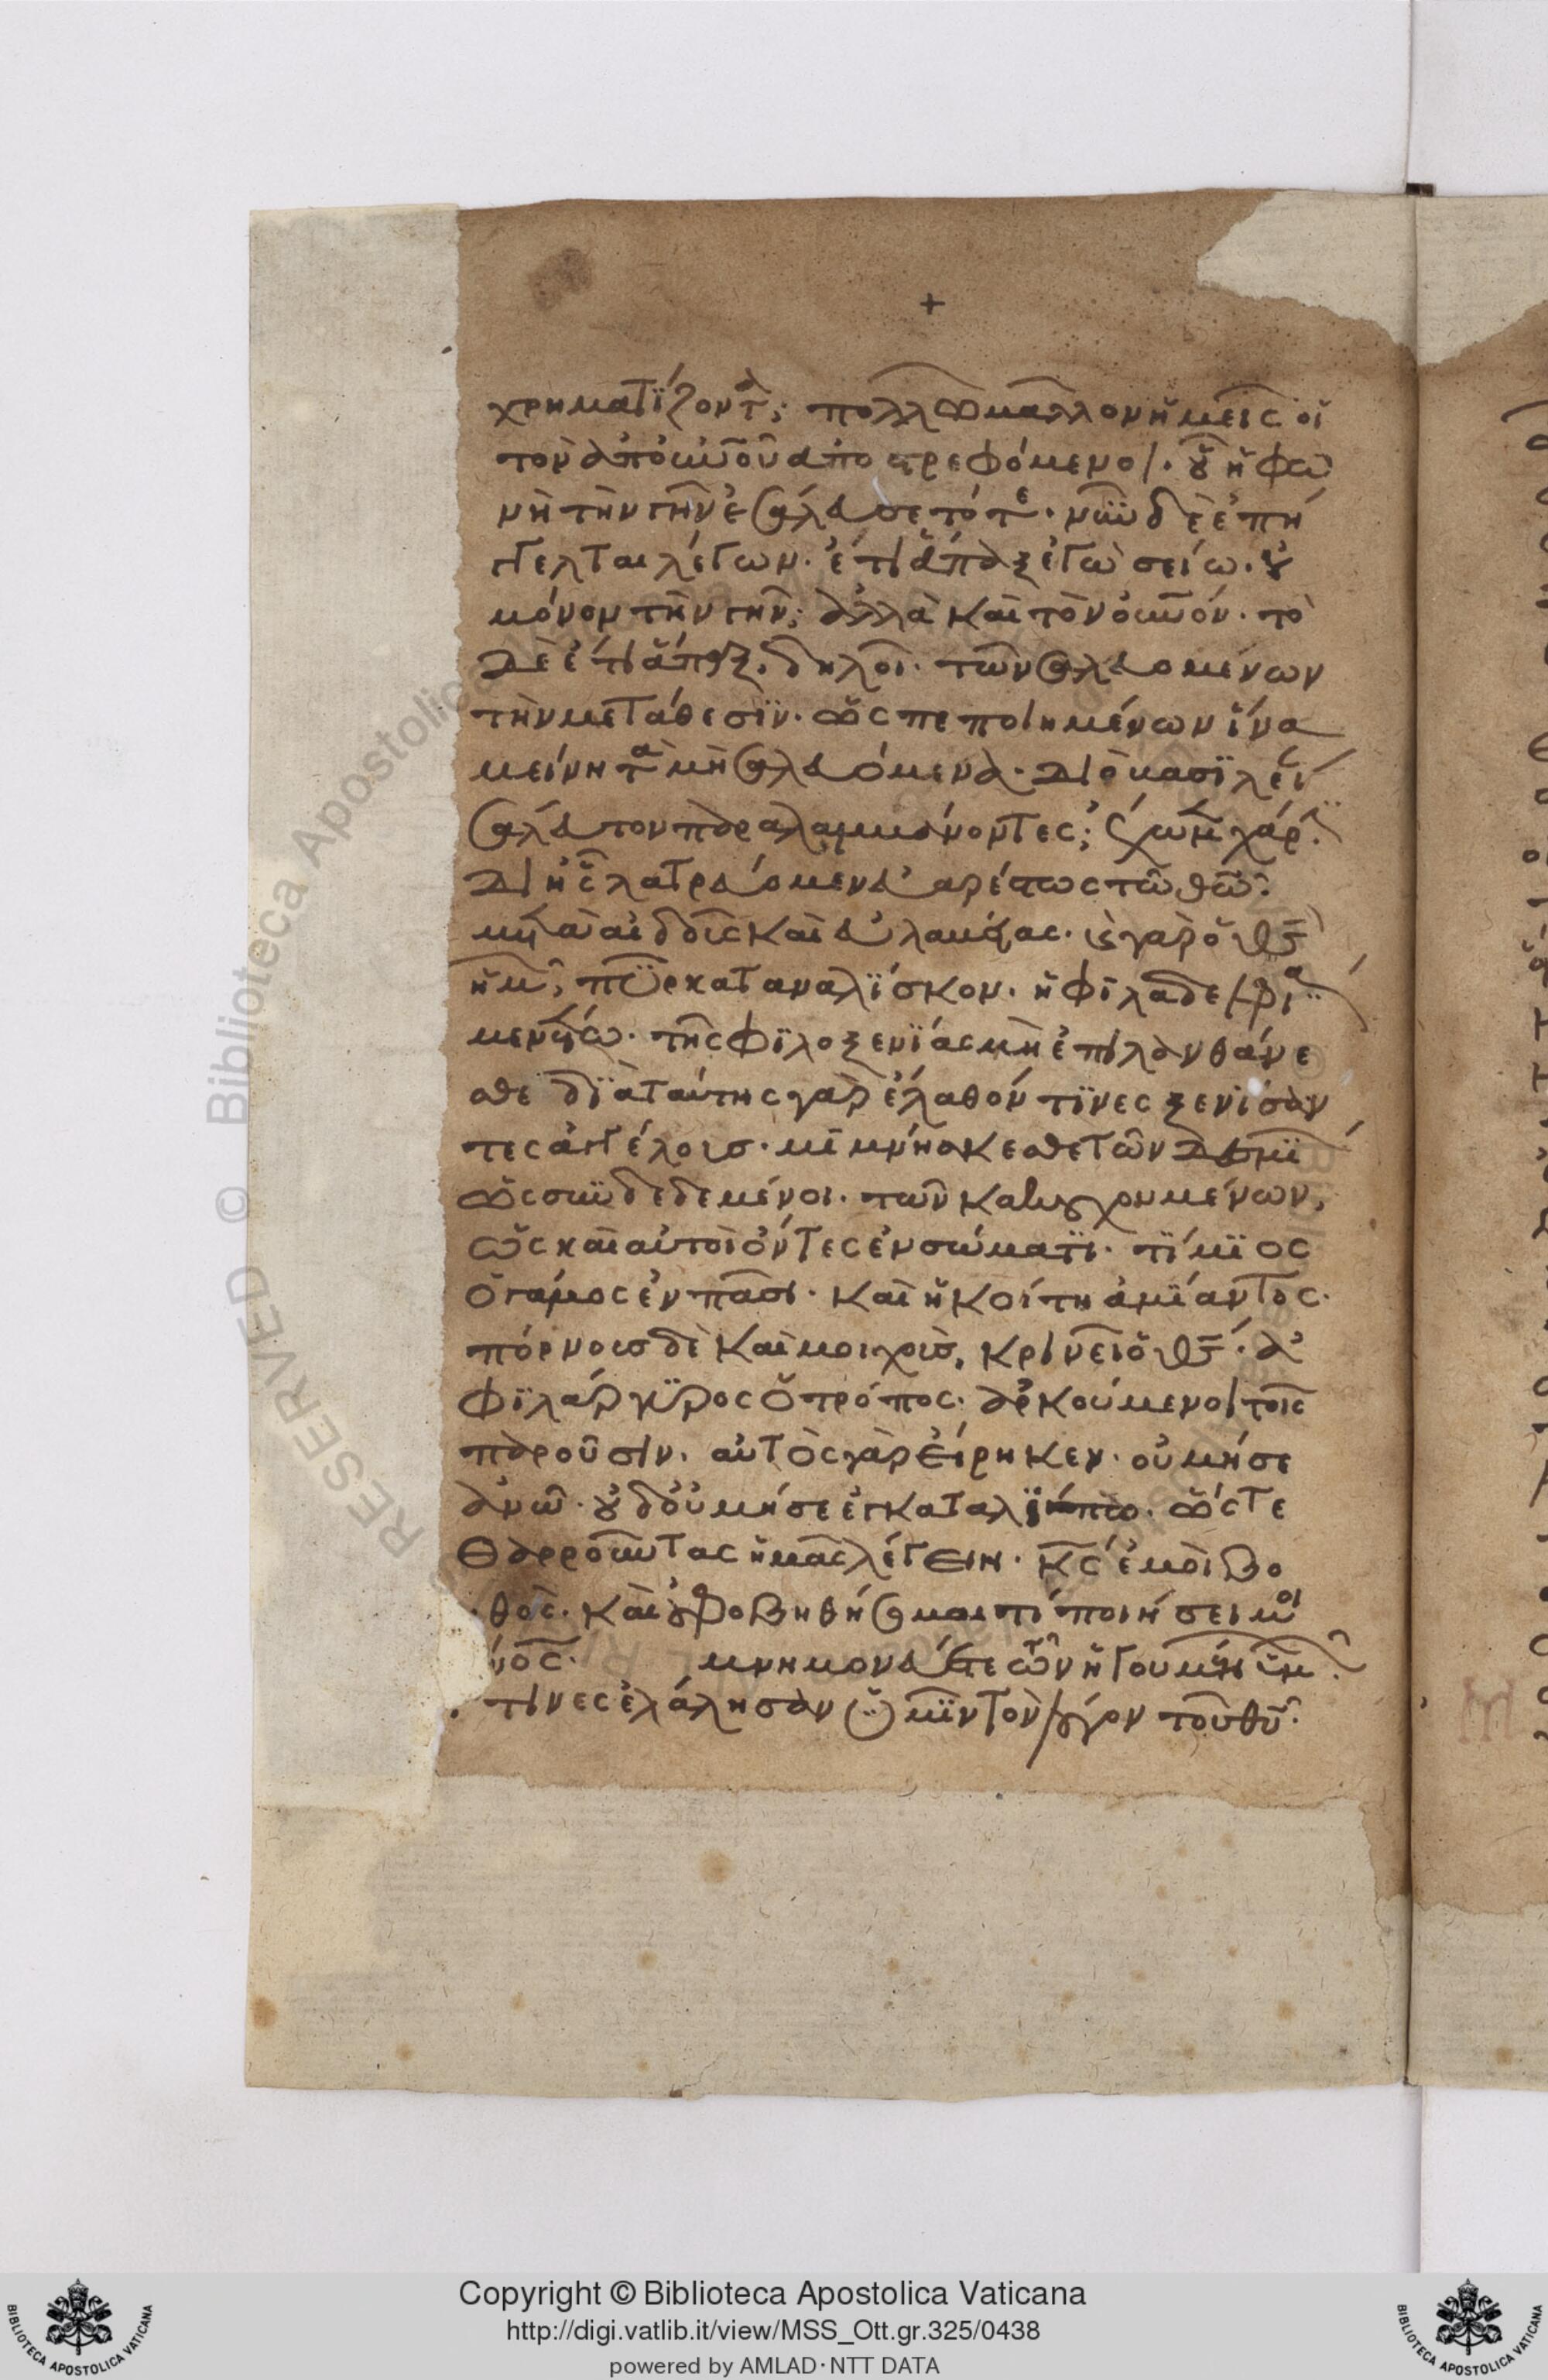 +
χρηματίζοντα· πολλῶ μᾶλλον ἡμεῖς οἱ
τὸν ἀπ' οὐνοῦ ἀποστρεφόμενοι. οὗ ἡ φω
νὴ τὴν γῆν ἐσάλευσε τότε. νῦν δὲ ἐπήγ
γελται λέγων. ἔτι ἅπαξ ἐγὼ σείω. οὐ
μόνον τὴν γῆν· ἀλλὰ καὶ τὸν οὐνόν. τὸ
δὲ ἔτι ἅπαξ. δηλοῖ. τῶν σαλευομένων
τὴν μετάθεσϊν. ὡς πεποιημένων ἵνα
μείνη τὰ μὴ σαλευόμενα. διὸ βασϊλεί
σάλευτον παραλαμβάνοντες· ἔχωμεν χάρϊ
δι ἧς λατρεύομεν εὐαρέστως τῶ θῶ.
μετὰ αἰδοῦς καὶ εὐλαβείας. καὶ γὰρ ὁ θς
ἡμῶν, πῦρ καταναλϊσκον. ἡ φϊλαδελφία
μενέτω. τῆς φϊλοξενϊας μὴ ἐπιλανθάνε
σθε δϊὰ ταύτης γὰρ ἔλαθόν τϊνες ξενϊσαν
τες ἀγγέλους. μϊμνήσκεσθε τῶν δεσμϊ
ὡς συνδεδεμένοι. τῶν κακουχουμένων,
ὡς καὶ αὐτοὶ ὄντες ἐν σώματϊ. τϊμϊος
ὁ γάμος ἐν πᾶσι. καὶ ἡ κοίτη ἀμϊαντος.
πόρνους δὲ καὶ μοιχοὺς, κρινεῖ ὁ θς. ἀ
φϊλάργυρος ὁ τρόπος. ἀρκούμενοι τοῖς
παροῦσιν. αὐτὸς γὰρ εἴρηκεν. οὐ μή σε
ἀνῶ. οὐδ' οὐ μή σε ἐγκαταλϊπω. ὥστε
θαρροῦντας ἡμᾶς λέγειν. κς ἐμοὶ βο
θὸς. καὶ οὐ φοβηθήσομαι τί ποιήσει μοι
νος. μνημονεύετε τῶν ἡγουμένων ὑμῶν
τινες ἐλάλησαν ὑμῖν τὸν λόγον τοῦ θυ.
Copyright © Biblioteca Apostolica Vaticana
http://digi.vatlib.it/view/MSS_Ott.gr.325/0438
powered by AMLAD·NTT DATA